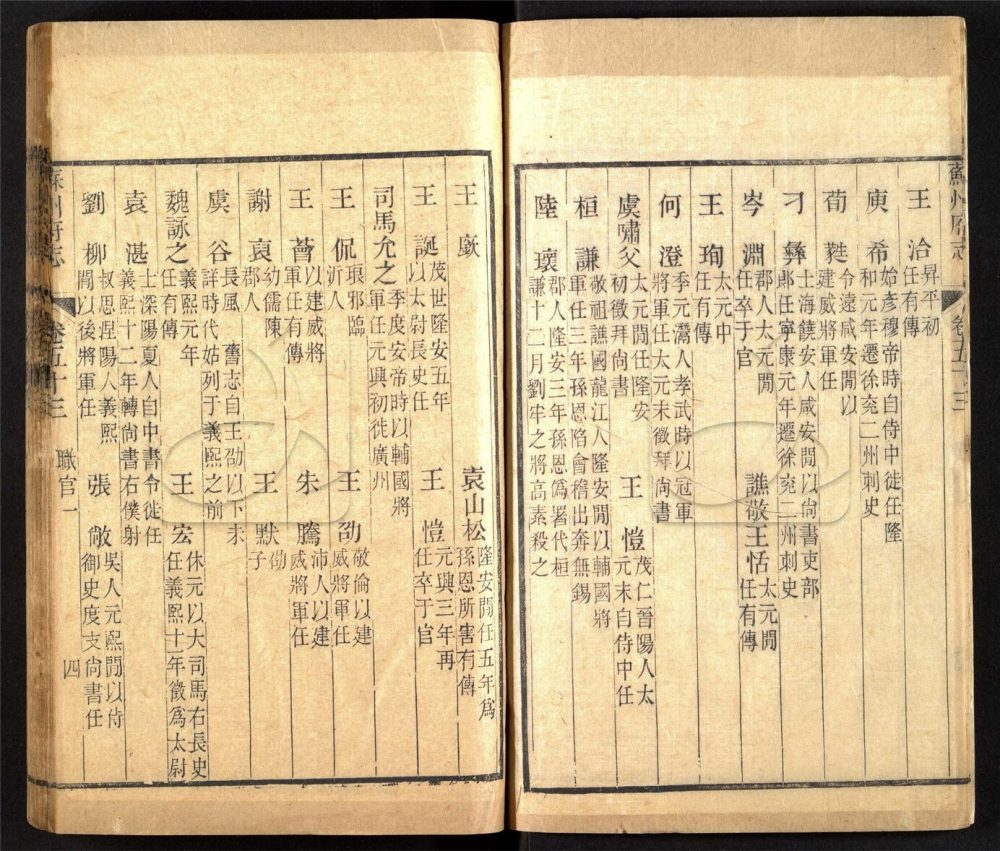 蘇州府志 卷五十三
王洽 昇平初任有傳
庾希 始彥穆帝時自侍中徙任隆和元年遷徐兗二州刺史
荀蕤 令遠咸安閒以建威將軍任
刁彝 士海饒安人咸安閒以尚書吏部郎任寧康元年遷徐兗二州刺史
岑淵 郡人太元閒任卒于官 譙敬王恬 太元閒任有傳
王珣 太元中任有傳
何澄 季元灊人孝武時以冠軍將軍任太元末徵拜尚書
虞嘯父 太元閒任隆安初徵拜尚書 王愷 茂仁晉陽人太元末自侍中任
桓謙 敬祖譙國龍江人隆安閒以輔國將軍任三年孫恩陷會稽出奔無錫
陸瓌 郡人隆安三年孫恩偽署代桓謙十二月劉牢之將高素殺之
王廞 袁山松 隆安閒任五年爲孫恩所害有傳
王誕 茂世隆安五年以太尉長史任 王愷 元興三年再任卒于官
司馬允之 季度安帝時以輔國將軍任元興初徙廣州
王侃 琅邪臨沂人 王劭 敬倫以建威將軍任
王薈 以建威將軍任有傳 朱騰 沛人以建威將軍任
謝裒 幼儒陳郡人 王默 劭子
虞谷 長風 舊志自王劭以下未詳時代姑列于義熙之前
魏詠之 義熙元年任有傳 王宏 休元以大司馬右長史任義熙十一年徵爲太尉
袁湛 士深陽夏人自中書令徙任義熙十二年轉尚書右僕射
劉柳 叔思涅陽人義熙閒以後將軍任 張敞 吳人元熙閒以侍御史度支尚書任
蘇州府志 卷五十三 職官一 四